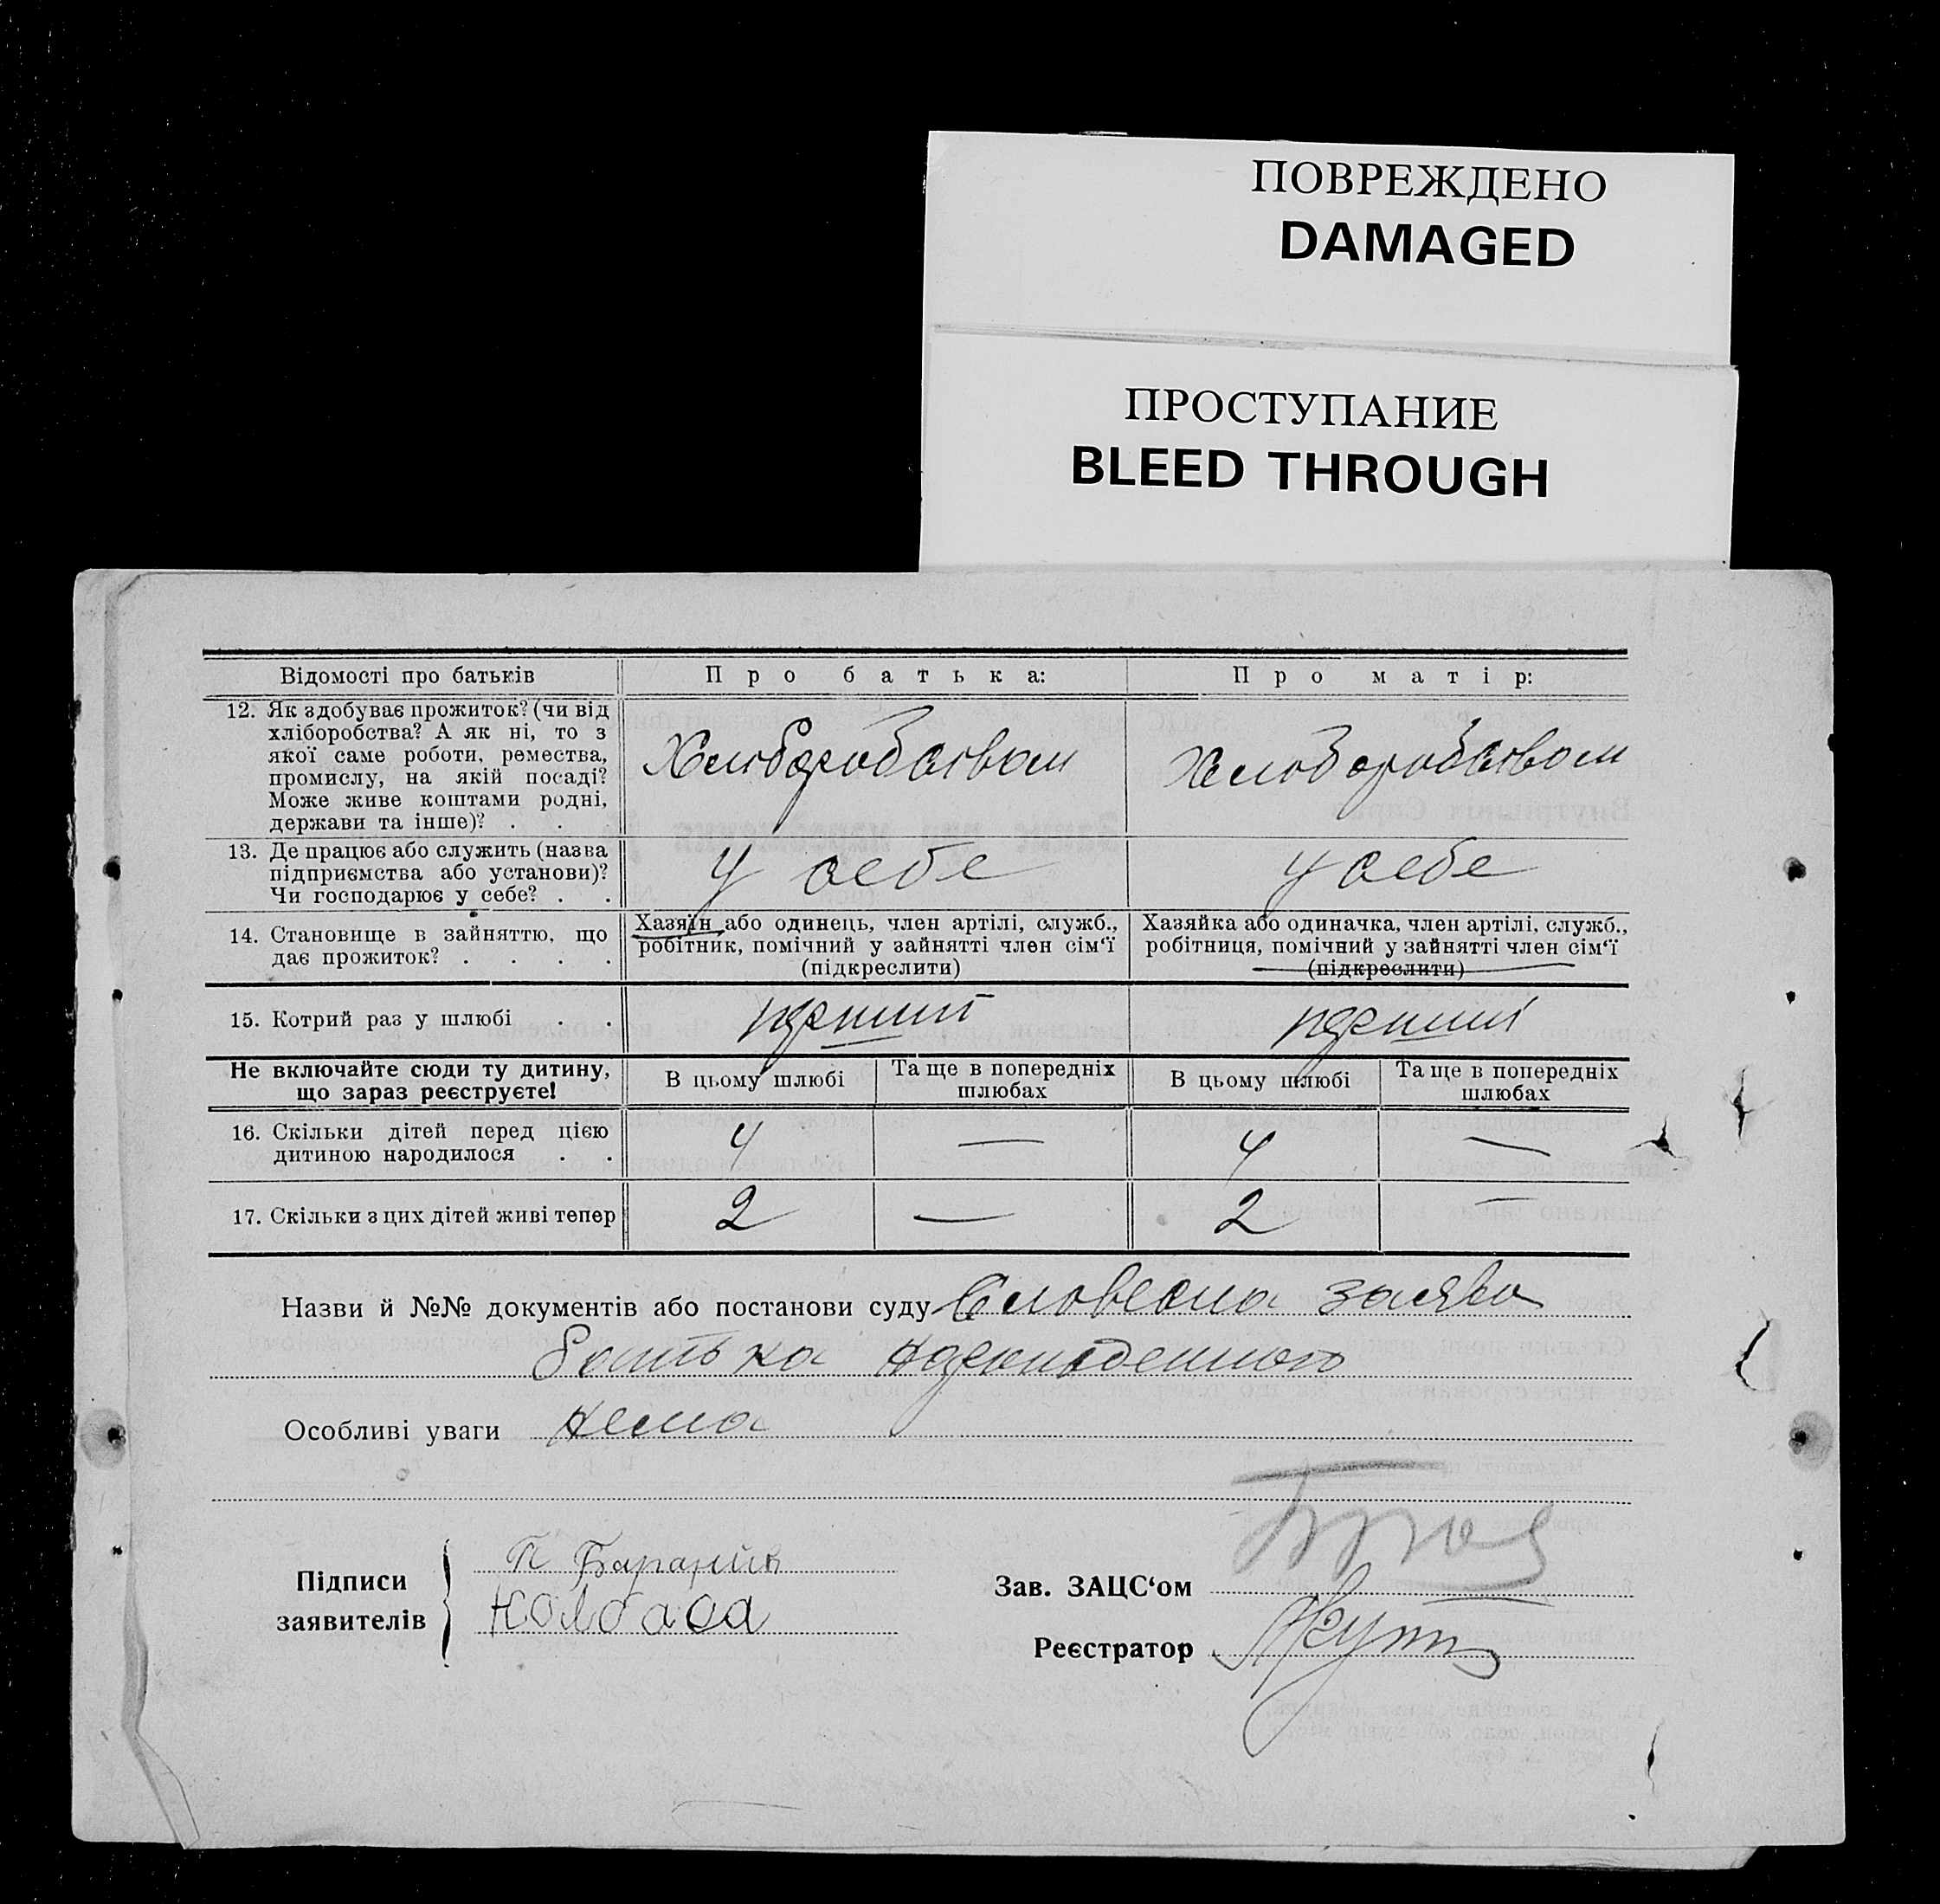 ПОВРЕЖДЕНО
DAMAGED
ПРОСТУПАНИЕ
BLEED THROUGH
Відомості про батьків
Про батька:
Про матір:
12. Як здобуває прожиток? (чи від
хліборобства? А як ні, то з
якої саме роботи, ремества,
промислу, на якій посаді?
Може живе коштами родні,
держави та інше)? . .
Хлиборобством
Хлиборобством
13. Де працює або служить (назва
підприємства або установи)?
Чи господарює у себе? . .
У себе
У себе
14. Становище в зайняттю, що
дає прожиток? . . . .
Хазяїн або одинець, член артілі, служб.,
робітник, помічний у зайнятті член сім‘ї
(підкреслити)
Хазяйка або одиначка, член артілі, служб.,
робітниця, помічний у зайнятті член сім‘ї
(підкреслити)
15. Котрий раз у шлюбі . .
перший
перший
Не включайте сюди ту дитину,
що зараз реєструєте!
В цьому шлюбі
Та ще в попередніх
шлюбах
В цьому шлюбі
Та ще в попередніх
шлюбах
16. Скільки дітей перед цією
дитиною народилося . .
4
—
4
—
17. Скільки з цих дітей живі тепер
2
—
2
—
Назви й №№ документів або постанови суду Словесна заява
батька народженного
Особливі уваги нема
Підписи
заявителів
П
Колбаса
Зав. ЗАЦС‘ом
Реєстратор